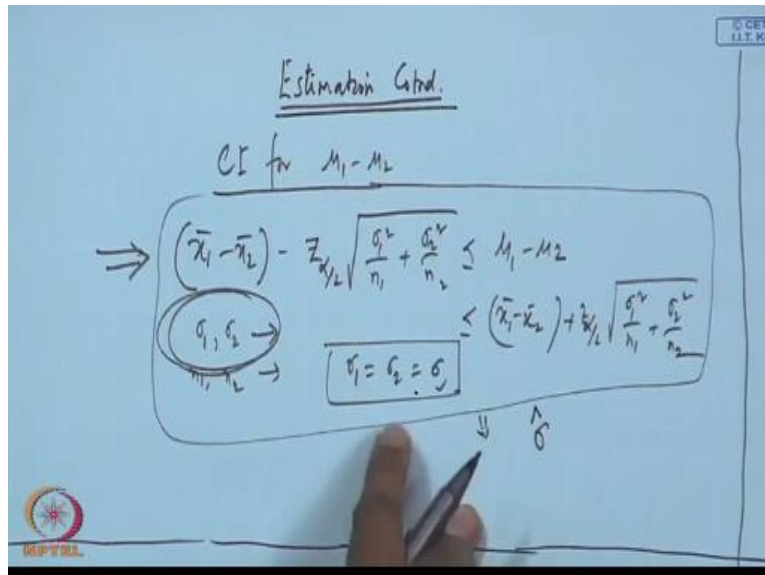 © CET
I.I.T. K
Estimation Contd.
CI for μ₁ - μ₂
⇒ (x̄₁ - x̄₂) - Z_{α/2} √(σ₁²/n₁ + σ₂²/n₂) ≤ μ₁ - μ2
≤ (x̄₁ - x̄₂) + Z_{α/2} √(σ₁²/n₁ + σ₂²/n₂)
σ₁, σ₂ →
n₁, n₂ →
σ₁ = σ₂ = σ
⇓ σ̂
NPTEL